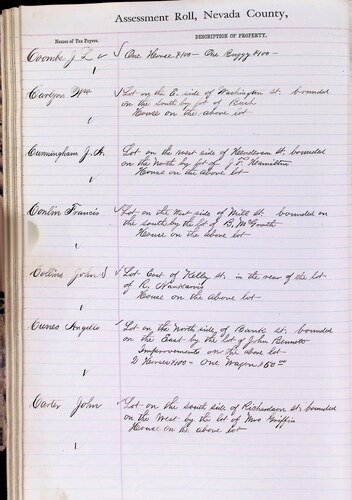 Assessment Roll, Nevada County,
Names of Tax Payers.
DESCRIPTION OF PROPERTY.
Coombs J L
One Horse $100 – One Buggy $100 –
Carlyon Wm
Lot on the E. side of Washington St. bounded
on the south by lot of Bush
House on the above lot
Cunningham J. A.
Lot on the west side of Henderson St. bounded
on the North by lot of J. L. Hamilton
House on the above lot
Conlin Francis
Lot on the West side of Mill St. bounded on
the south by the lot of B. McGrath
House on the above lot
Collins John S
Lot East of Kelly St. in the rear of the lot
of R.
House on the above lot
Angelo
Lot on the North side of St. bounded
on the East by the lot of John Bennett
Improvements on the above lot
2 Horses $100 – One Wagon $50
Carter John
Lot on the south side of Richardson St. bounded
on the West by the lot of Mrs Griffin
House on the above lot